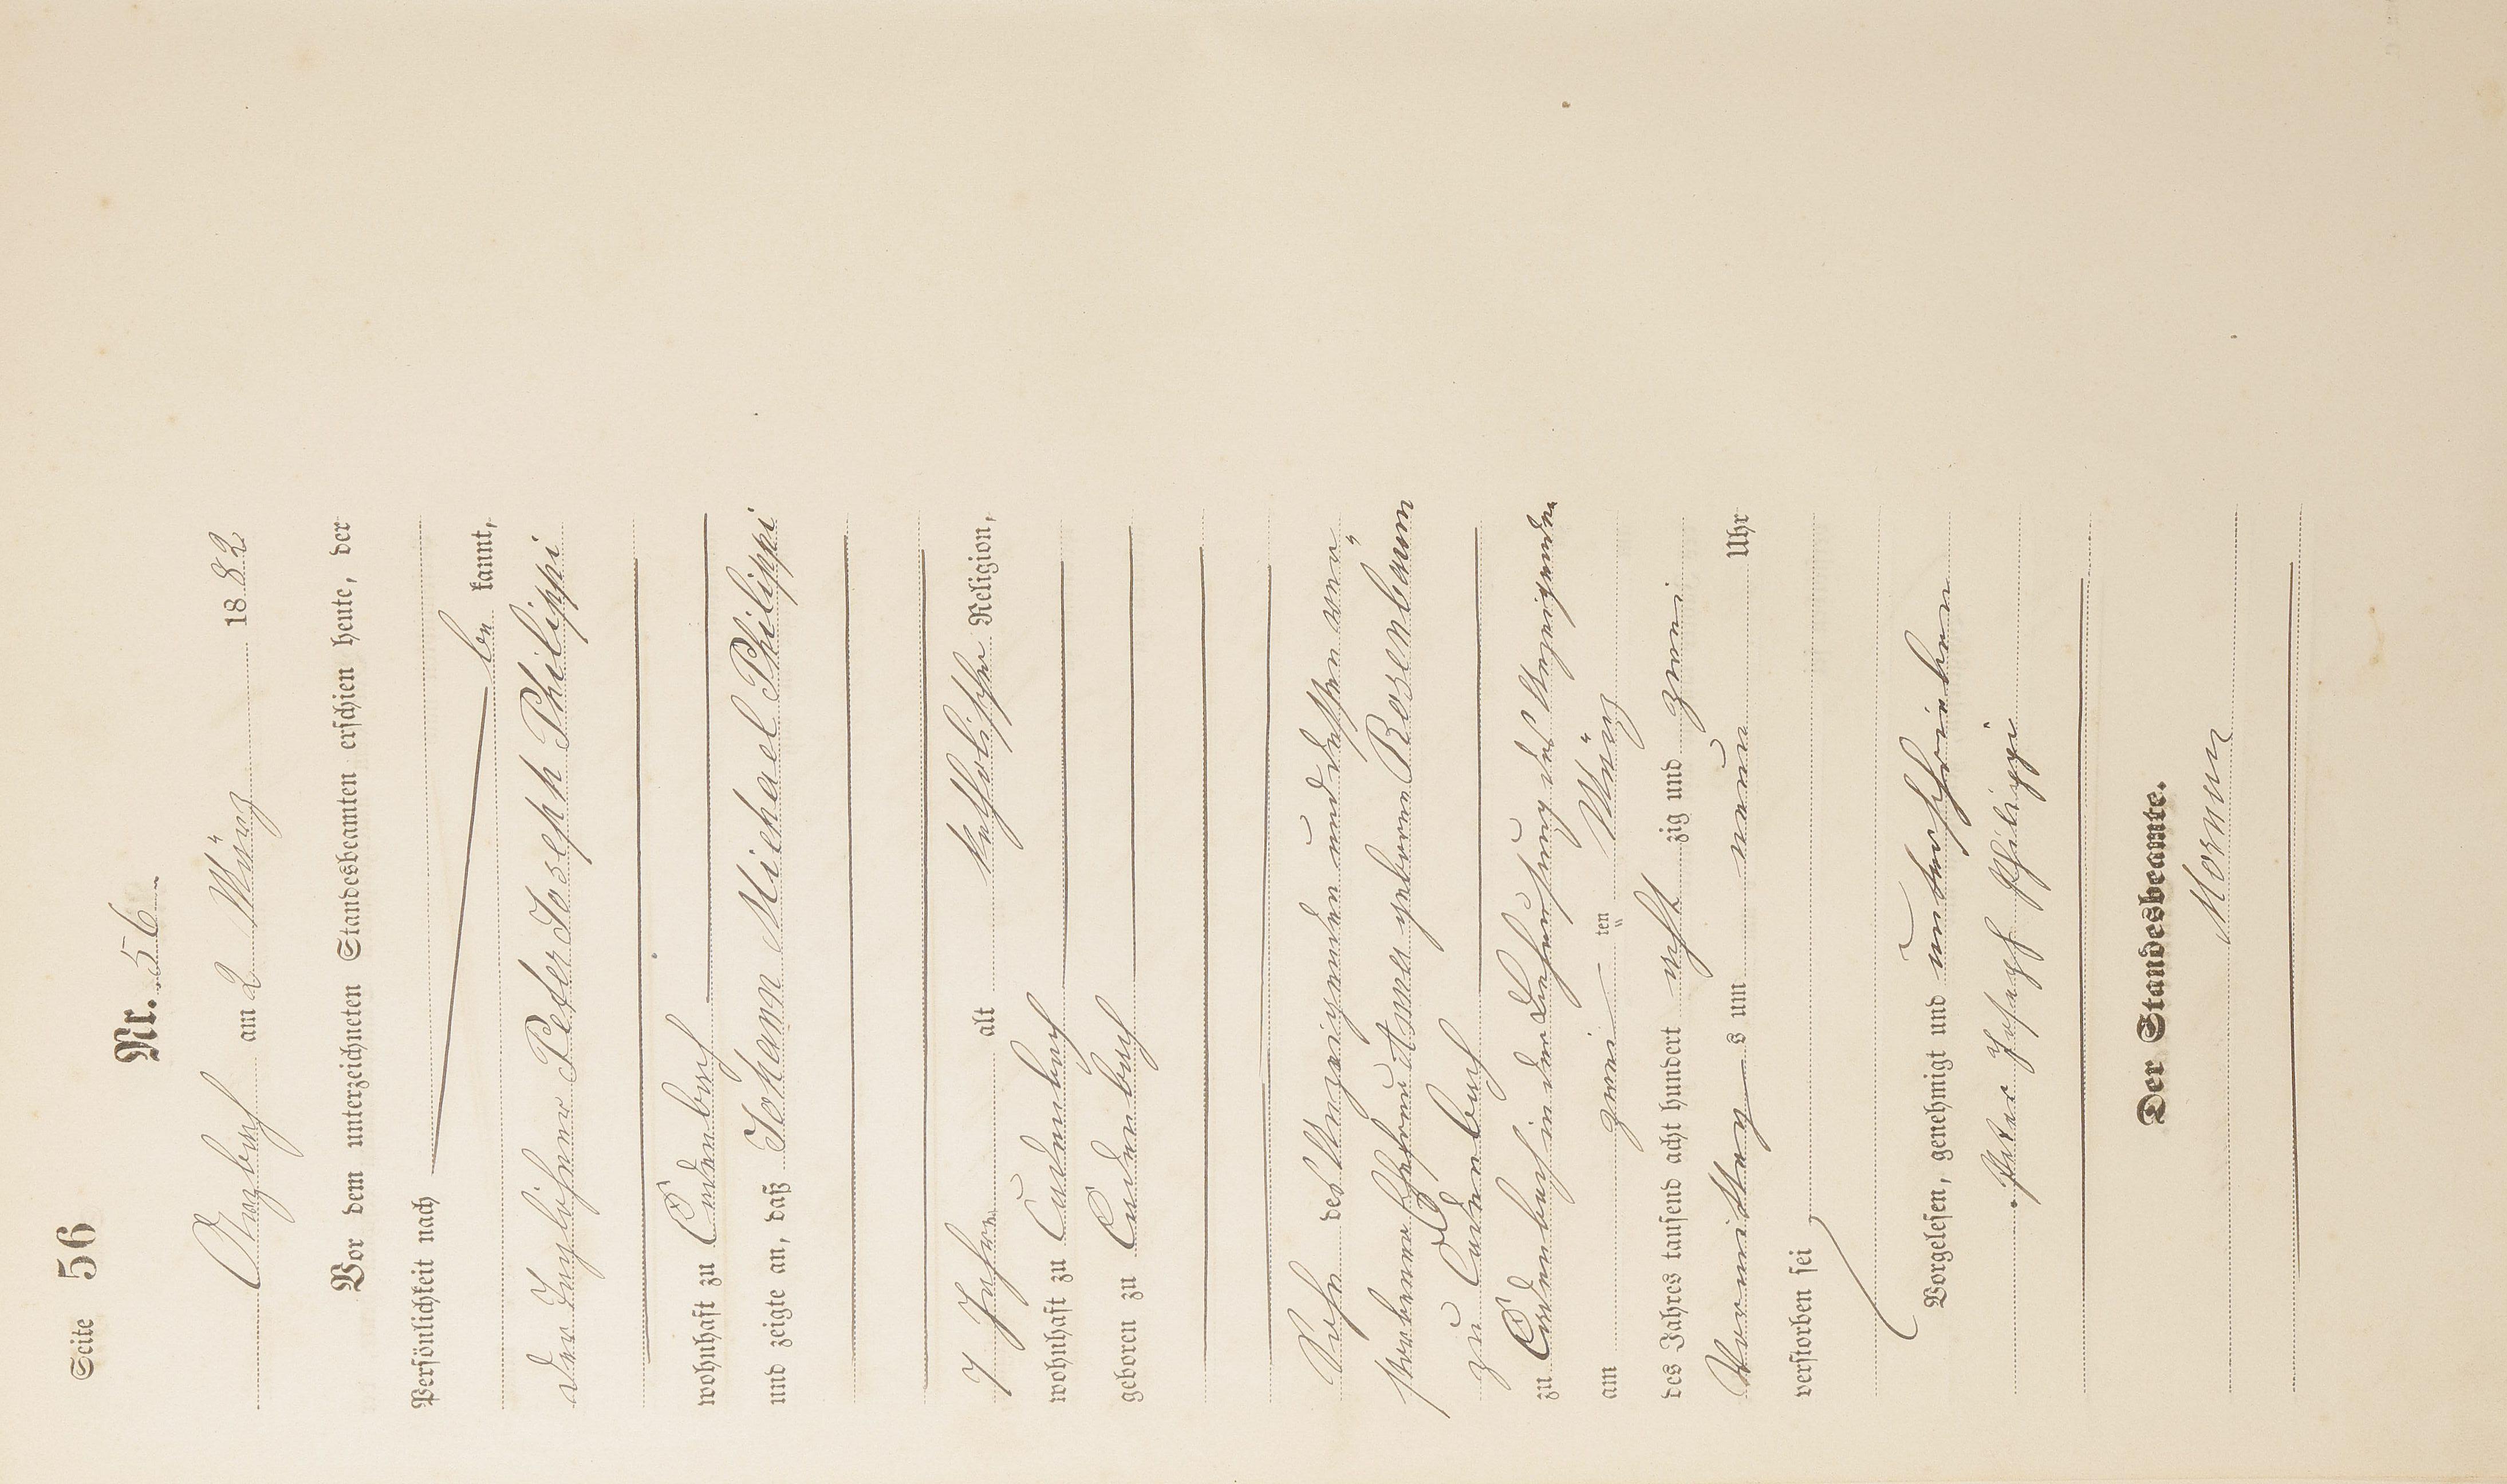 Seite 56
Nr. 56
am 2 März 1882
Vor dem unterzeichneten Standesbeamten erschien heute, der
Persönlichkeit nach
be kannt,
der Taglöhner Peter Joseph Philippi
wohnhaft zu Cadenbach
und zeigte an, daß Johann Michael Philippi
7 Jahre alt katholischer Religion,
wohnhaft zu Cadenbach
geboren zu Cadenbach
Sohn des Anzeigenden und dessen ver„
storbenen Ehefrau Anna geborene Rosenbaum
zu Cadenbach
zu Cadenbach in der Behausung des Anzeigenden
am zwei ten März
des Jahres tausend acht hundert acht zig und zwei
Vormittag s um neun Uhr
verstorben sei
Vorgelesen, genehmigt und unterschrieben
Peter Josepf Philippi
Der Standesbeamte.